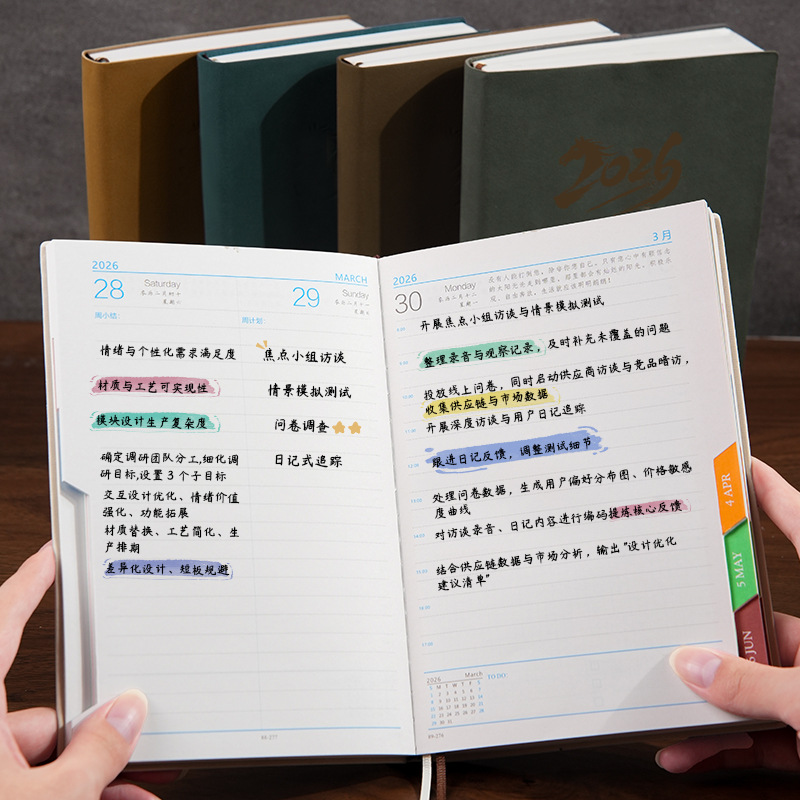 2026
2026
28
Saturday
29
Sunday
MARCH
周小结:
周计划:
情绪与个性化需求满足度
材质与工艺可实现性
模块设计生产复杂度
确定调研团队分工,细化调
研目标,设置3个子目标
交互设计优化、情绪价值
强化、功能拓展
材质替换、工艺简化、生
产排期
差异化设计、短板规避
焦点小组访谈
情景模拟测试
问卷调查
日记式追踪
2026
3月
30
Monday
开展焦点小组访谈与情景模拟测试
整理录音与观察记录,及时补充未覆盖的问题
投放线上问卷,同时启动供应商访谈与竞品暗访,
收集供应链与市场数据
开展深度访谈与用户日记追踪
跟进日记反馈,调整测试细节
处理问卷数据,生成用户偏好分布图、价格敏感
度曲线
对访谈录音、日记内容进行编码提炼核心反馈
结合供应链数据与市场分析,输出“设计优化
建议清单”
2026 March
TO DO
4 APR
5 MAY
6 JUN